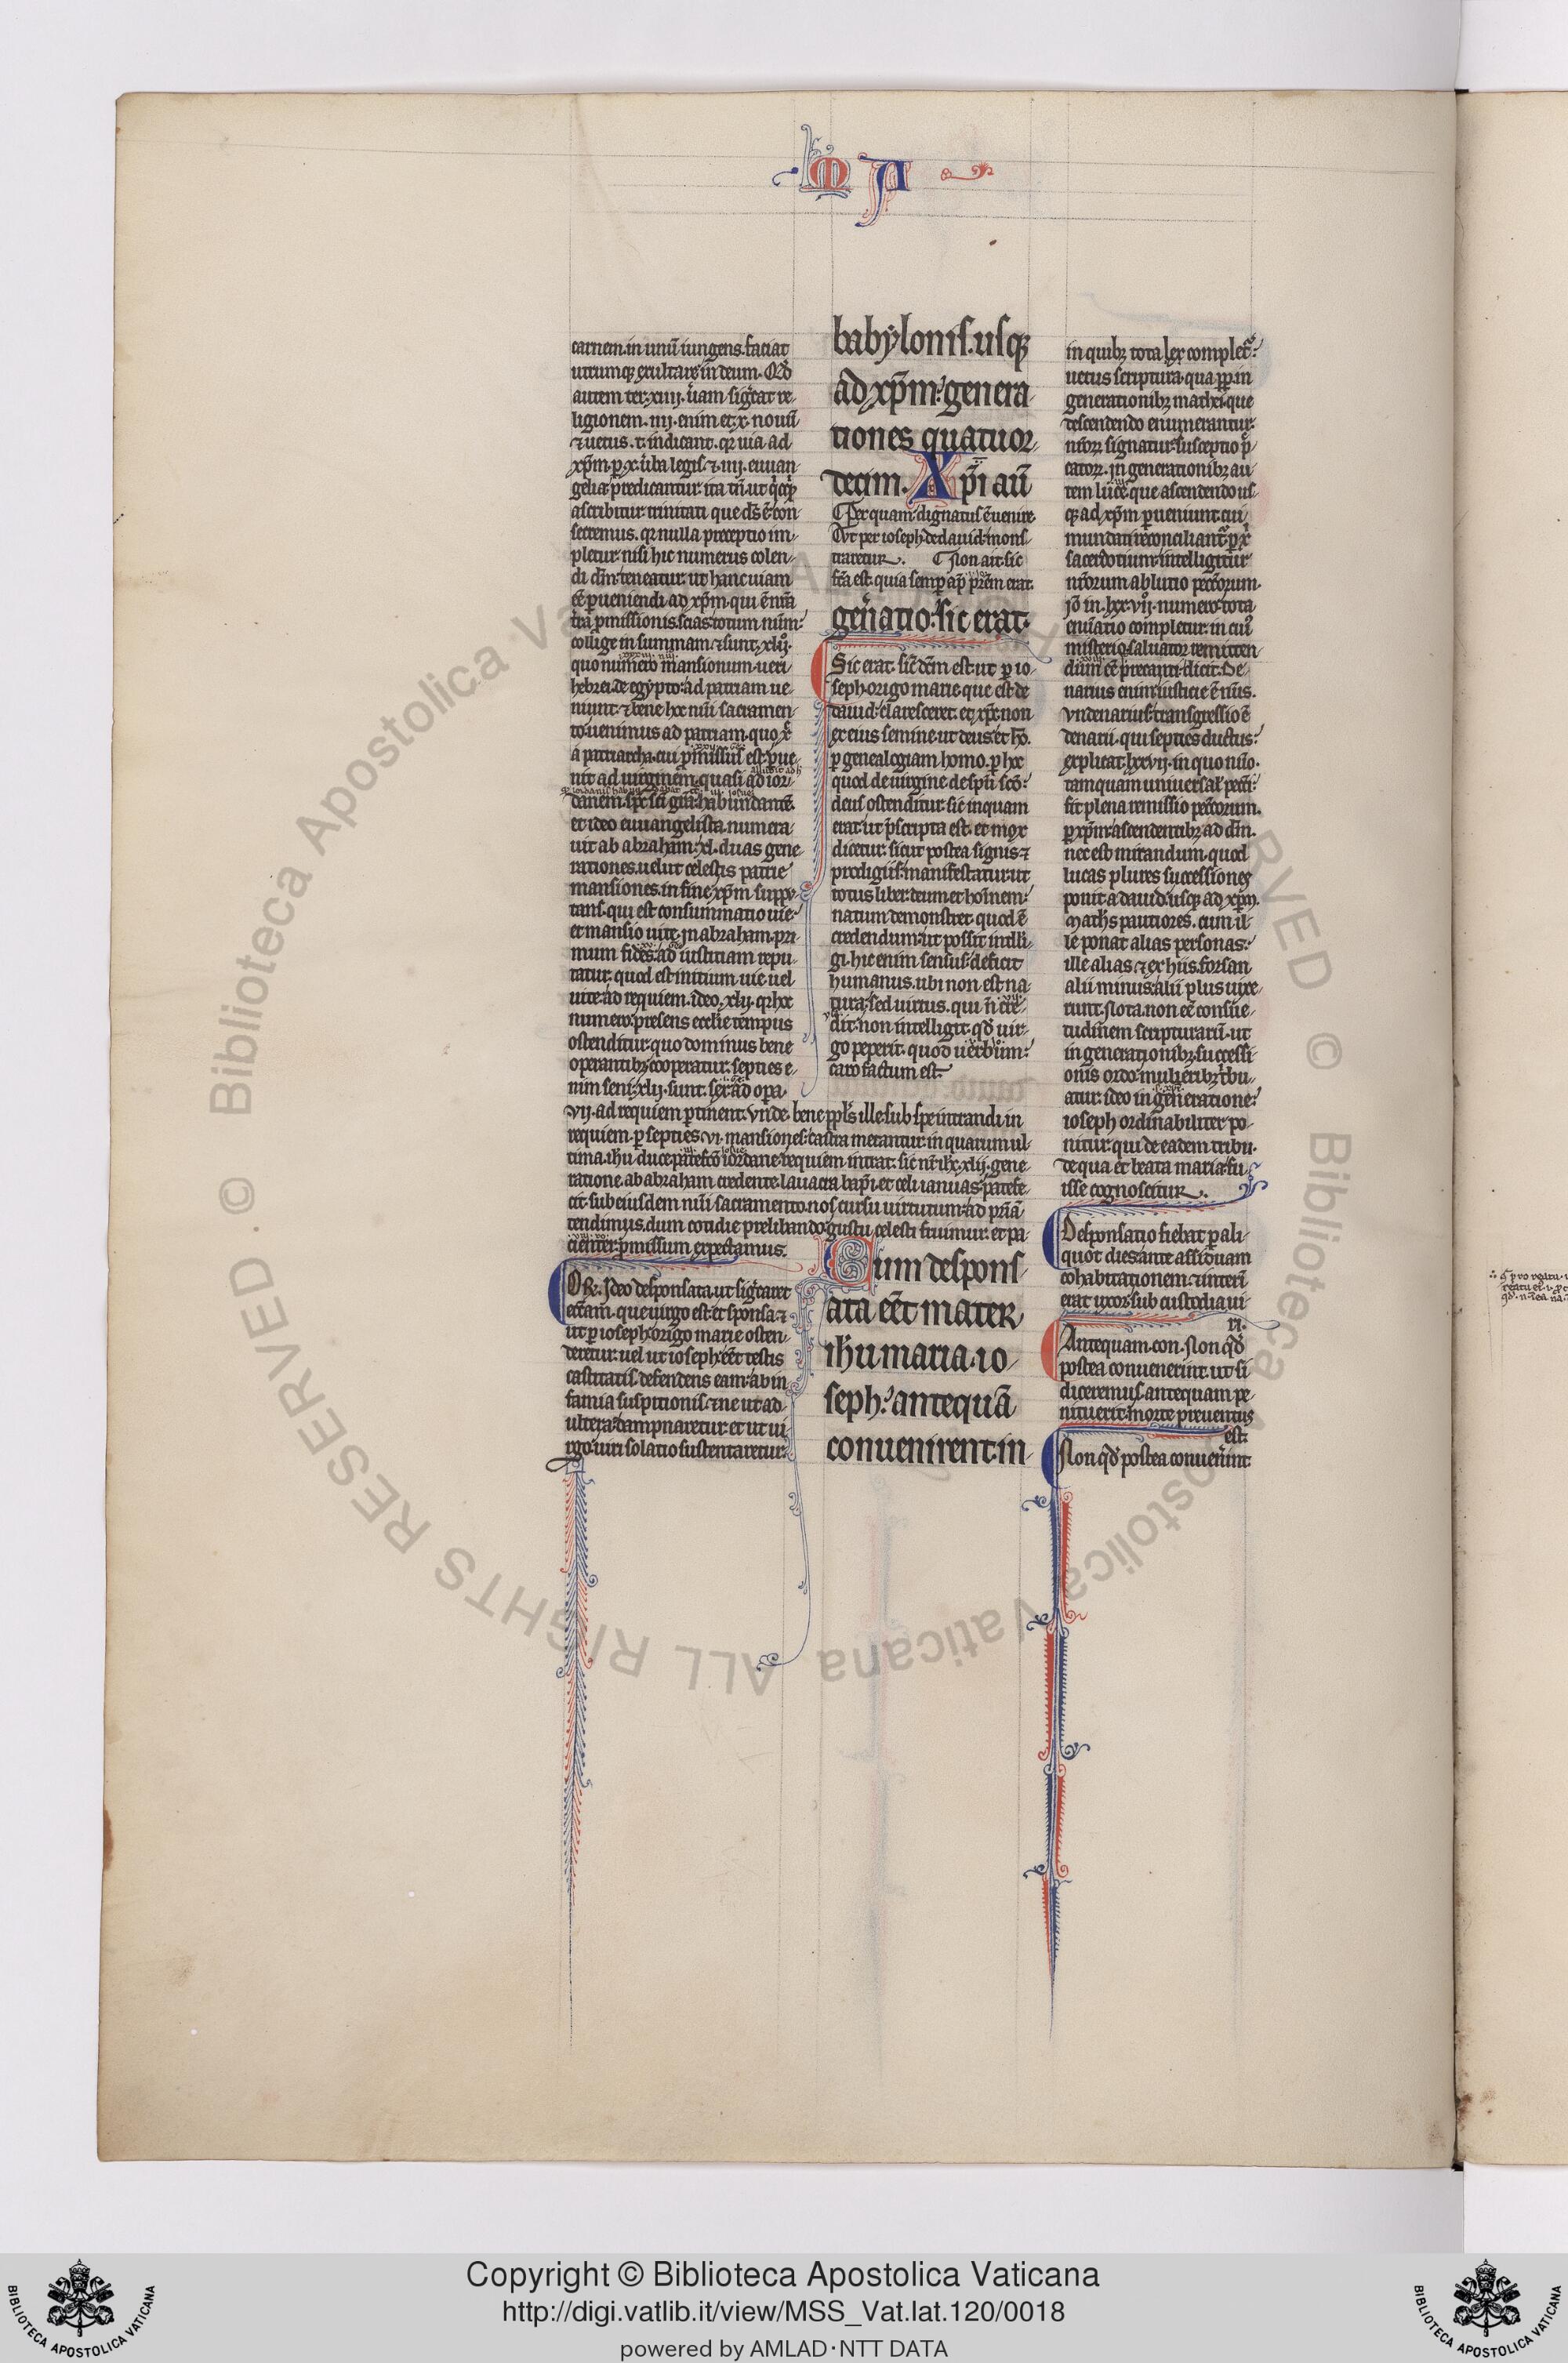 MA
carnem. in unũ iungens. faciat
utrumq; exultare in deum. Qđ
autem ter. xiiij. uiam sigͨat re-
ligionem. iiij. enim et. x. nouũ
⁊ uetus. t. indicant. qr uia ad
xp̃m. ꝑ. x. ũba legis. ⁊. iiij. euuan-
gelia predicantur. ita tñ. ut
ascribitur trinitati que ds̃ ẽ. con-
secremus. qr nulla preceptio im-
pletur. nisi hic numerus colen-
di dm̃. teneatur. ut hanc uiam
eẽ ꝑueniendi ad xp̃m. qui ẽ nrã
tr̃a ꝓmissionis. scias. totum nũm
collige in summam. ⁊ sunt. xlij.
quo numero mansionum. ueri
hebrei. de egypto. ad patriam ue-
niunt. ⁊ bene hoc nũi sacramen-
to. uenimus ad patriam. quo xͨ
a patriarcha. cui ꝓmissus est. ꝑue-
nit ad uirginem. quasi ad ior-
danem. sp̃c sc̃i gr̃a. habundantẽ.
et ideo euuangelista. numera-
uit ab abraham. xl. duas gene-
rationes. uelut celestis patrie
mansiones. in fine xp̃m. suppu-
tans. qui est consummatio uie.
et mansio uite. in abraham. pri-
mum fides. ad iustitiam repu-
tatur. quod est initium. uie uel
uite. ad requiem. ideo. xlij. qr hoc
numero. presens ecclie tempus
ostenditur. quo dominus bene
operantibȝ cooperatur. septies e-
nim seni. xlij. sunt. sex. ad opa.
vij. ad requiem ꝑtinent. vnde. bene ppl̃s ille. sub spe intrandi in
requiem. ꝑ septies. vi. mansiones. castra metantur. in quarum ul-
tima. ihũ duce. patefcõ iordane. requiem intrat. sic nr̃ ihc̃. xlij. gene-
ratione. ab abraham credente. lauacra bap̃i. et celi ianuas. patefe-
cit. sub eiusdem nũi sacramento. nos cursu uirtutum. ad prãã
tendimus. dum cotidie prelibando. gustu celesti fruimur. et pa-
cienter. ꝓmissum expectamus.
OR. Ideo desponsata. ut sigͨaret
ecc̃am. que uirgo est. et sponsa. ⁊
ut ꝑ ioseph. origo marie osten-
deretur. uel ut ioseph. eẽt testis
castitatis. defendens eam. ab in-
famia suspitionis. ⁊ ne ut ad-
ultera. dampnaretur. et ut ui-
rgo. uiri solatio sustentaretur.
babylonis. usq;
ad xp̃m. genera-
tiones quatuor-
decim. Xp̃i aũ
Per quam. dignatus ẽ uenire.
Vt per ioseph. de dauid. mons-
traretur. Non ait. sic
fc̃a est. quia semꝑ ap̃ prẽm erat.
gen̾atio. sic erat.
Sic erat. sic̃ dc̃m est. ut ꝑ io-
seph origo marie. que est de
dauid. claresceret. et xp̃c non
ex eius semine. ut deus. et hõ.
ꝑ genealogiam homo. ꝑ hoc
quod de uirgine. de spũ scõ.
deus ostenditur. sic inquam
erat. ut p̃scripta est. et mox
dicetur. sicut postea signis. ⁊
prodigiis. manifestatur. ut
totus liber. deum et hoĩem.
natum demonstret. quod ẽ
credendum. ut possit intelli-
gi. hic enim sensus. deficit
humanus. ubi non est na-
tura. sed uirtus. qui ñ cre-
dit. non intelligit. qđ uir-
go peperit. quod uerbum.
caro factum est.
Cum despons-
ata eẽt mater
ihũ maria. io-
seph. antequã
conuenirent. in-
in quibȝ tota lex complet̃.
uetus scriptura. qua ꝓp̃. in
generationibȝ mathei. que
descendendo enumerantur.
nr̃orȝ signatur. susceptio pͨ-
catorȝ. in generationibȝ au-
tem luce. que ascendendo us-
q; ad xp̃m ꝑueniunt. cui
mundati reconciliant̃. ꝑ xͥ
sacerdotium. intelligitur
nr̃orum ablutio pec̃orum.
iõ in. lxx. vij. numero. tota
enũatio completur. in cuiꝰ
misterio. saluator remitten-
dum eẽ precanti. dicit. De-
narius enim. iusticie ẽ nũs.
vndenarius. transgressio ẽ
denarii. qui septies ductus.
explicat. lxxvij. in quo nũo.
tamquam uniuersal̃ pecc̃i.
fit plena remissio pec̃orum.
ꝑ xp̃m. ascendentibȝ ad dm̃.
nec est mirandum. quod
lucas plures successiones
ponit a dauid. usq; ad xp̃m.
Math̃s pautiores. cum il-
le ponat alias personas.
ille alias. ⁊ ex hiis. forsan
alii minus. alii plus uixe-
runt. Nota. non eẽ consue-
tudinem scripturarũ. ut
in generationibȝ. successi-
onis ordo. mulieribȝ t̃bu-
atur. ideo in generatione.
ioseph ordinabiliter po-
nitur. qui de eadem tribu.
de qua et beata maria. fu-
isse cognoscitur.
Desponsatio fiebat ꝑ ali-
quot dies. ante assiduam
cohabitationem. ⁊ interĩ
erat uxor. sub custodia ui-
ri.
Antequam. con. Non qđ
postea conuenerint. ut si
diceremus. antequam pe-
nituerit. morte preuentus
est.
Non qđ postea conuen̾int
© Biblioteca Apostolica Vaticana ALL RIGHTS RESERVED
Copyright © Biblioteca Apostolica Vaticana
http://digi.vatlib.it/view/MSS_Vat.lat.120/0018
powered by AMLAD·NTT DATA
BIBLIOTECA APOSTOLICA VATICANA
BIBLIOTECA APOSTOLICA VATICANA